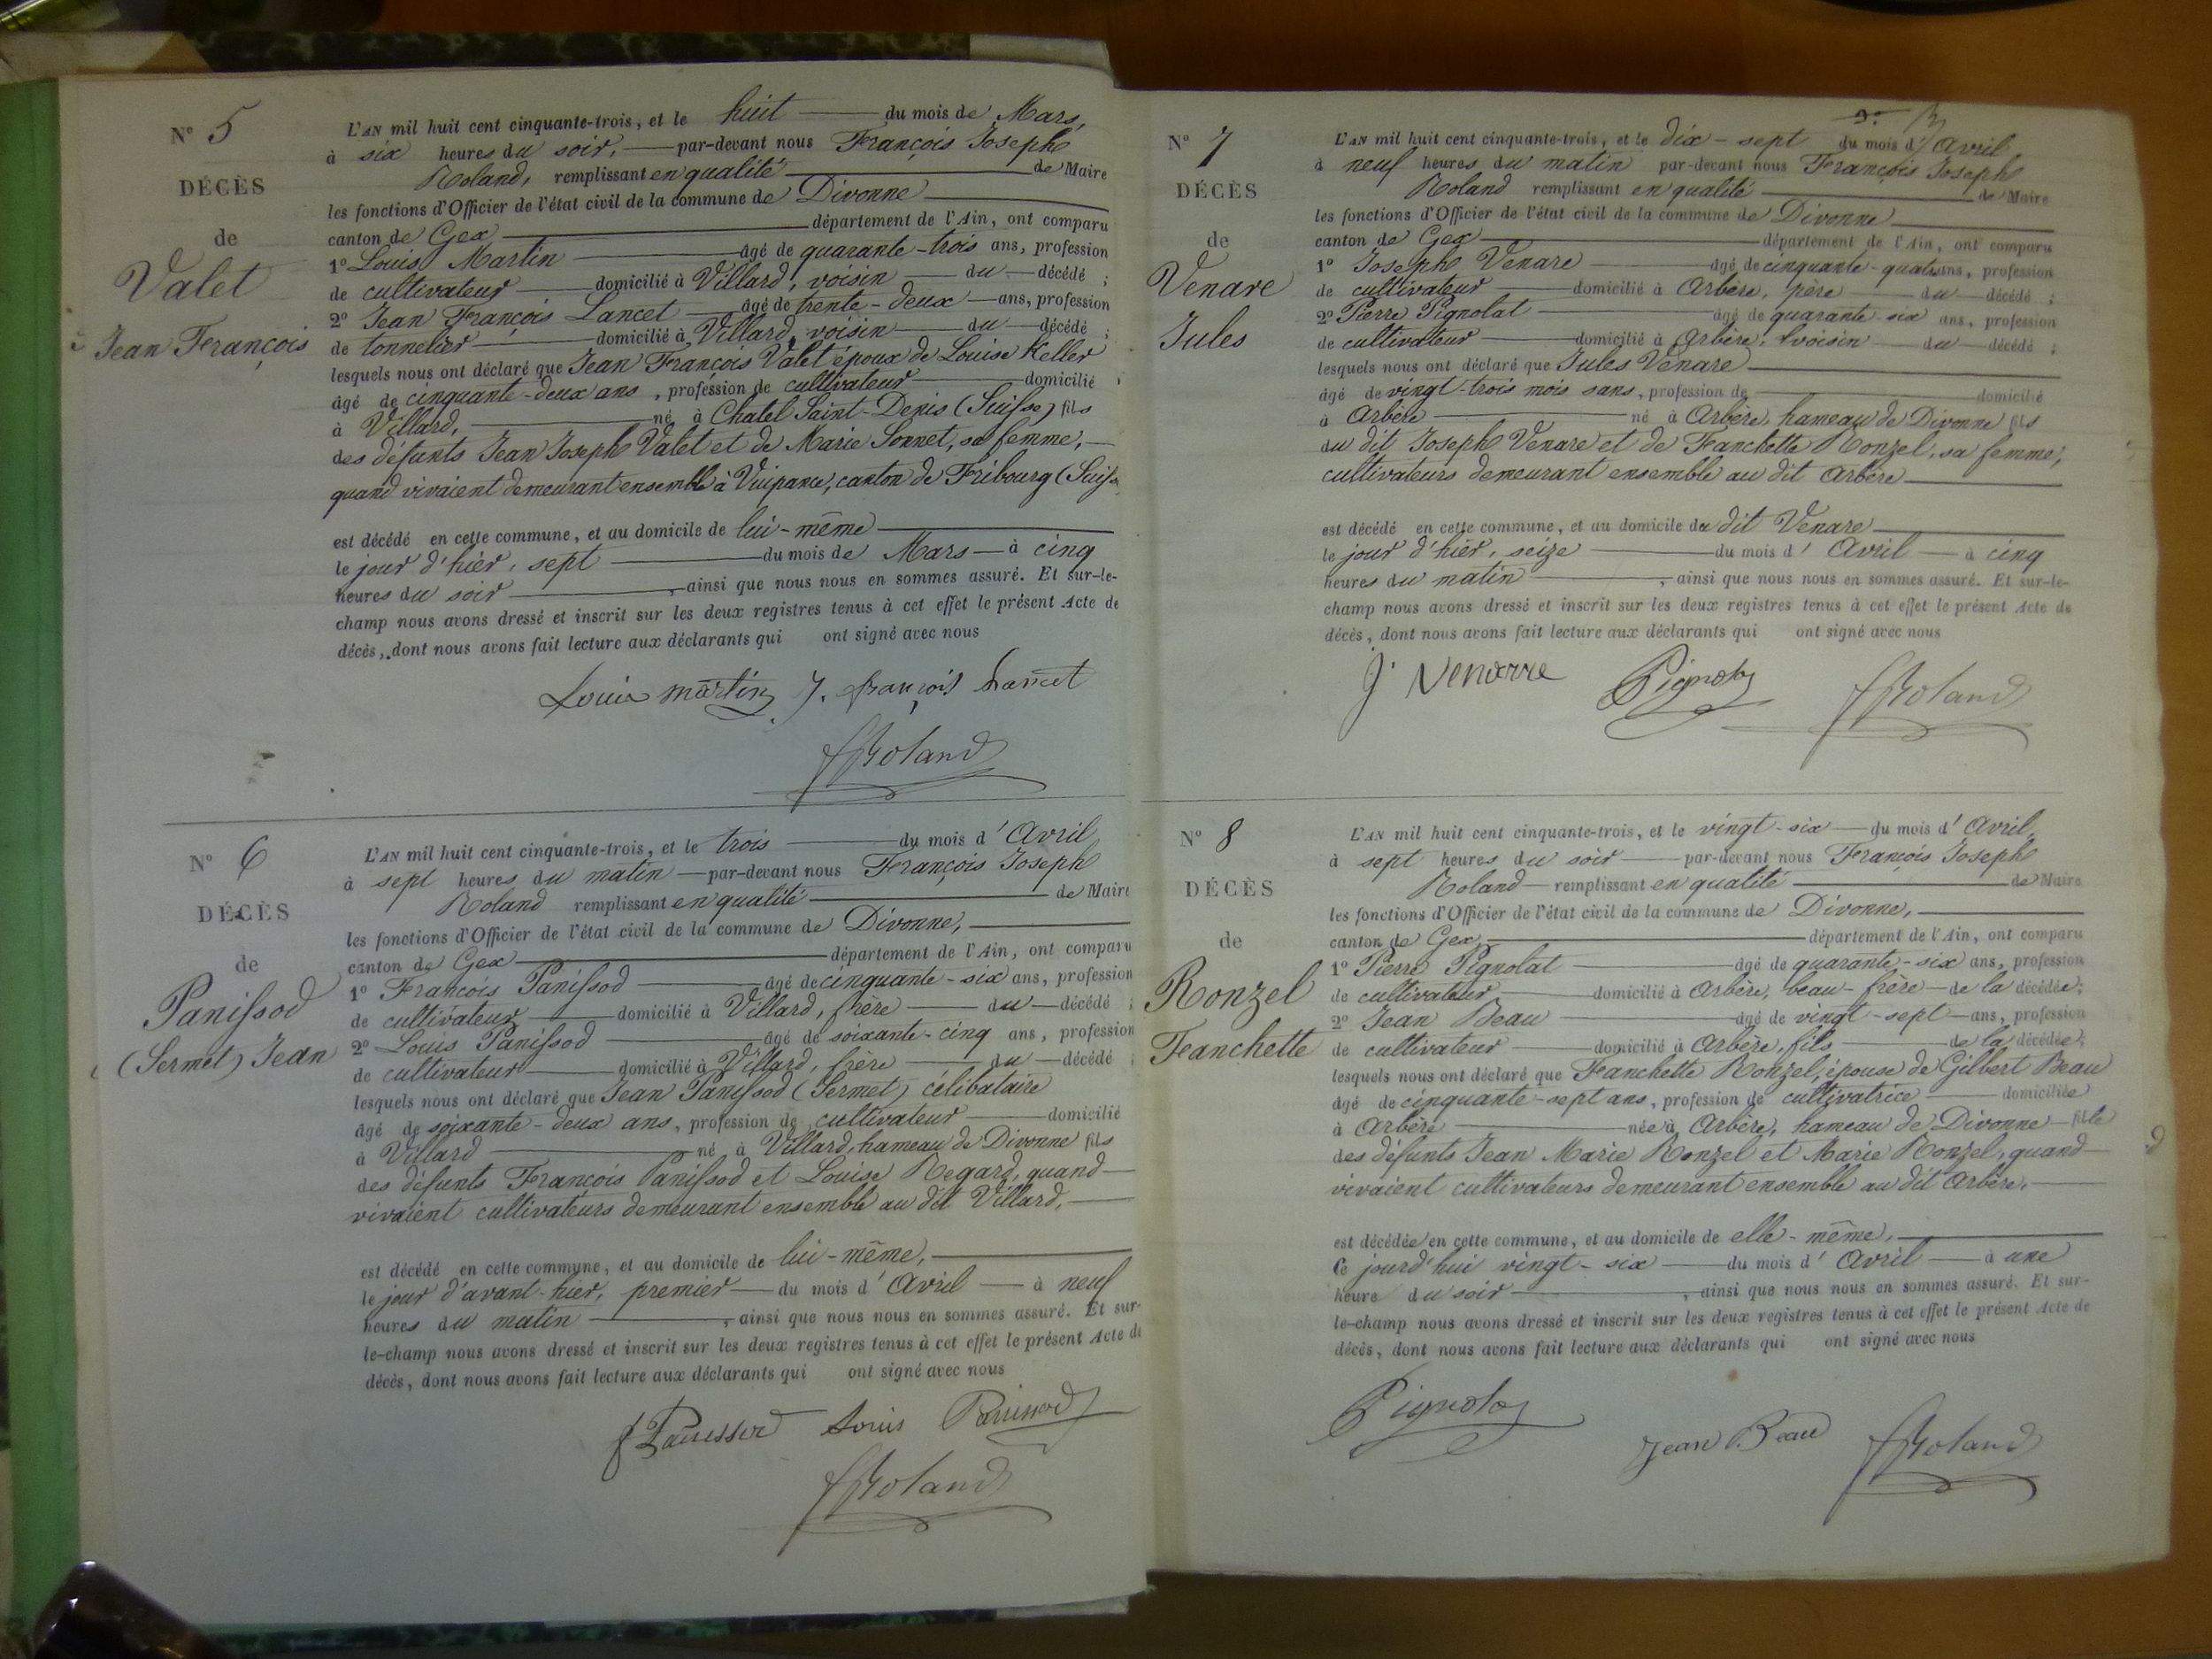 N° 5
DÉCÈS
de
Valet
Jean François
L'AN mil huit cent cinquante-trois, et le huit du mois de Mars,
à six heures du soir, par-devant nous François Joseph
Roland, remplissant en qualité de Maire
les fonctions d'Officier de l'état civil de la commune de Divonne
canton de Gex département de l'Ain, ont comparu
1° Louis Martin âgé de quarante-trois ans, profession
de cultivateur domicilié à Villard, voisin du décédé ;
2° Jean François Lancet âgé de trente-deux ans, profession
de tonnelier domicilié à Villard, voisin du décédé ;
lesquels nous ont déclaré que Jean François Valet époux de Louise Keller
âgé de cinquante-deux ans, profession de cultivateur domicilié
à Villard, né à Chatel Saint-Denis (Suisse) fils
des défunts Jean Joseph Valet et de Marie Sonnet, sa femme,
quand vivaient demeurant ensemble à Vuipance, canton de Fribourg (Suisse
est décédé en cette commune, et au domicile de lui-même
le jour d'hier, sept du mois de Mars à cinq
heures du soir, ainsi que nous nous en sommes assuré. Et sur-le-
champ nous avons dressé et inscrit sur les deux registres tenus à cet effet le présent Acte de
décès, dont nous avons fait lecture aux déclarants qui ont signé avec nous
Louis Martin J. françois Lancet
fRoland
N° 6
DÉCÈS
de
Panissod
(Sermet) Jean
L'AN mil huit cent cinquante-trois, et le trois du mois d'Avril,
à sept heures du matin par-devant nous François Joseph
Roland remplissant en qualité de Maire
les fonctions d'Officier de l'état civil de la commune de Divonne,
canton de Gex département de l'Ain, ont comparu
1° François Panissod âgé de cinquante-six ans, profession
de cultivateur domicilié à Villard, frère du décédé ;
2° Louis Panissod âgé de soixante-cinq ans, profession
de cultivateur domicilié à Villard, frère du décédé ;
lesquels nous ont déclaré que Jean Panissod (Sermet) célibataire
âgé de soixante-deux ans, profession de cultivateur domicilié
à Villard né à Villard, hameau de Divonne fils
des défunts François Panissod et Louise Regard, quand
vivaient cultivateurs demeurant ensemble au dit Villard,
est décédé en cette commune, et au domicile de lui-même,
le jour d'avant-hier, premier du mois d'Avril à neuf
heures du matin, ainsi que nous nous en sommes assuré. Et sur-
le-champ nous avons dressé et inscrit sur les deux registres tenus à cet effet le présent Acte de
décès, dont nous avons fait lecture aux déclarants qui ont signé avec nous
f Panissod Louis Panissod
fRoland
N° 7
DÉCÈS
de
Venare
Jules
L'AN mil huit cent cinquante-trois, et le dix-sept du mois d'Avril,
à neuf heures du matin par-devant nous François Joseph
Roland remplissant en qualité de Maire
les fonctions d'Officier de l'état civil de la commune de Divonne
canton de Gex département de l'Ain, ont comparu
1° Joseph Venare âgé de cinquante-quatre ans, profession
de cultivateur domicilié à Arbère, père du décédé ;
2° Pierre Pignolat âgé de quarante-six ans, profession
de cultivateur domicilié à Arbère, voisin du décédé ;
lesquels nous ont déclaré que Jules Venare
âgé de vingt-trois mois sans, profession de domicilié
à Arbère né à Arbère, hameau de Divonne fils
du dit Joseph Venare et de Fanchette Ronzel, sa femme,
cultivateurs demeurant ensemble au dit Arbère
est décédé en cette commune, et au domicile du dit Venare
le jour d'hier, seize du mois d'Avril à cinq
heures du matin, ainsi que nous nous en sommes assuré. Et sur-le-
champ nous avons dressé et inscrit sur les deux registres tenus à cet effet le présent Acte de
décès, dont nous avons fait lecture aux déclarants qui ont signé avec nous
J. Venarre Pignolat fRoland
N° 8
DÉCÈS
de
Ronzel
Fanchette
L'AN mil huit cent cinquante-trois, et le vingt-six du mois d'Avril,
à sept heures du soir par-devant nous François Joseph
Roland remplissant en qualité de Maire
les fonctions d'Officier de l'état civil de la commune de Divonne,
canton de Gex, département de l'Ain, ont comparu
1° Pierre Pignolat âgé de quarante-six ans, profession
de cultivateur domicilié à Arbère, beau-frère de la décédée ;
2° Jean Beau âgé de vingt-sept ans, profession
de cultivateur domicilié à Arbère, fils de la décédée ;
lesquels nous ont déclaré que Fanchette Ronzel, épouse de Gilbert Beau
âgé de cinquante-sept ans, profession de cultivatrice domiciliée
à Arbère née à Arbère, hameau de Divonne fille
des défunts Jean Marie Ronzel et Marie Ronzel, quand
vivaient cultivateurs demeurant ensemble au dit Arbère.
est décédée en cette commune, et au domicile de elle-même,
Ce jourd'hui vingt-six du mois d'Avril à une
heure du soir, ainsi que nous nous en sommes assuré. Et sur-
le-champ nous avons dressé et inscrit sur les deux registres tenus à cet effet le présent Acte de
décès, dont nous avons fait lecture aux déclarants qui ont signé avec nous
Pignolat Jean Beau fRoland